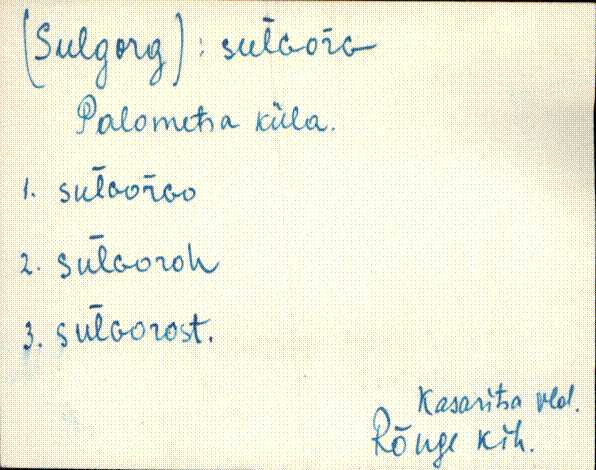 (Sulgorg) : sul̄ɢor̄ɢ
Palometsa küla.
1. sul̄ɢor̄ɢo
2. sul̄ɢoroh
3. sul̄ɢorost.
Kasaritsa vld.
Rõuge kih.